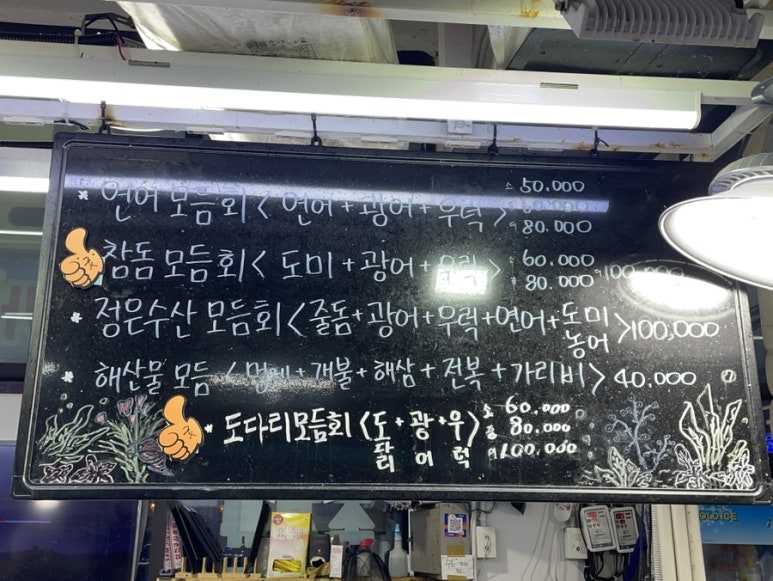 * 연어 모듬회 < 연어 + 광어 + 우럭 > 소 50.000
80.000
참돔 모듬회 < 도미 + 광어 + 우럭 > 소 60.000
80.000 100.000
* 정은수산 모듬회 < 줄돔 + 광어 + 우럭 + 연어 + 도미 농어 > 100,000
* 해산물 모듬 < 멍게 + 개불 + 해삼 + 전복 + 가리비 > 40.000
* 도다리모듬회 < 도다리 + 광어 + 우럭 > 소 60.000
중 80.000
대 100.000